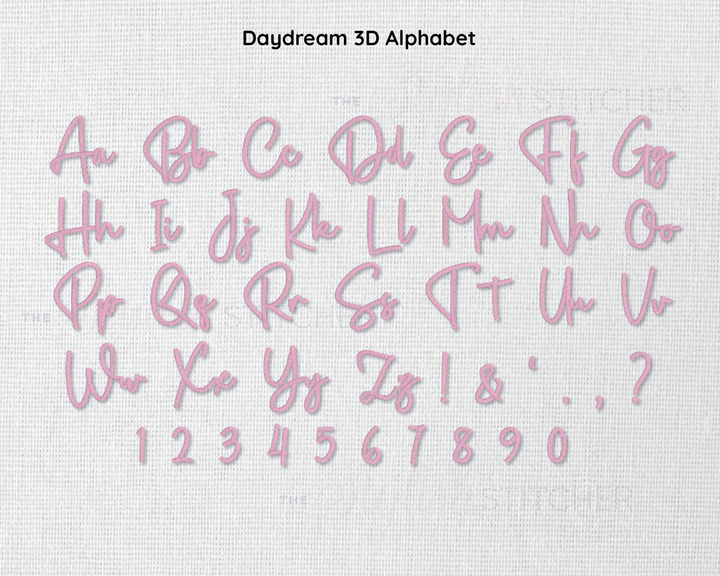 Daydream 3D Alphabet
THE STITCHER
Aa Bb Cc Dd Ee Ff Gg
Hh Ii Jj Kk Ll Mm Nn Oo
Pp Qq Rr Ss Tt Uu Vv
THE STITCHER
Ww Xx Yy Zz ! & ‘ . , ?
1 2 3 4 5 6 7 8 9 0
THE STITCHER